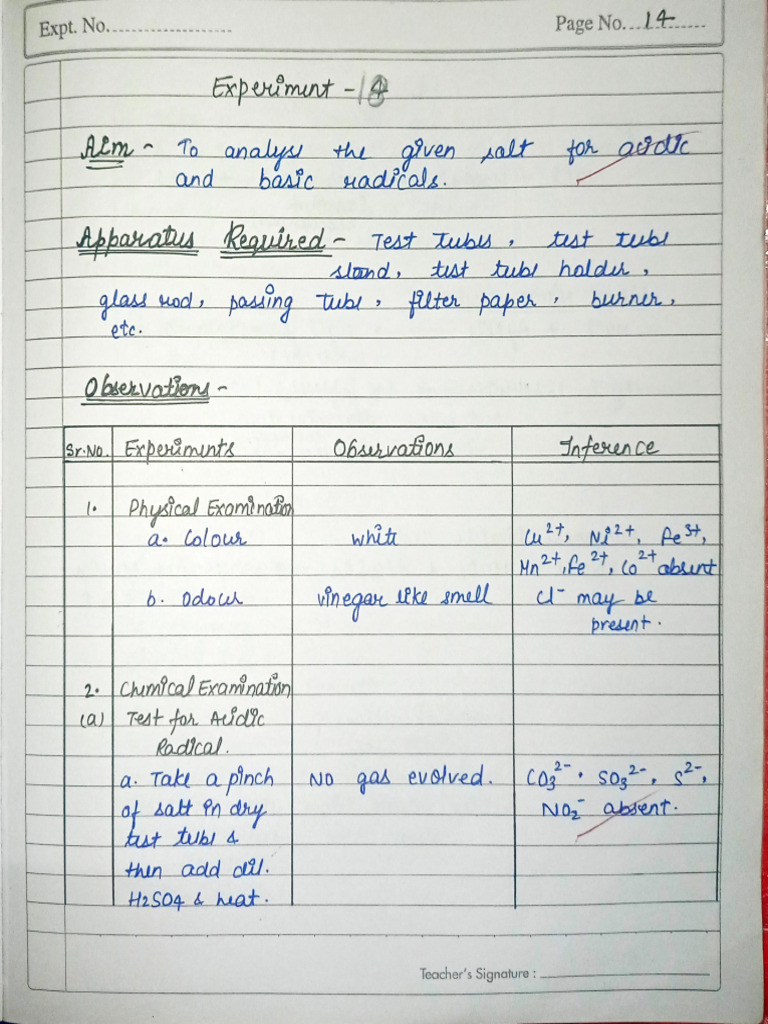 Expt. No.
Page No. 14
Experiment -
Aim - To analyse the given salt for acidic
and basic radicals.
Apparatus Required - Test tubes, test tube
stand, test tube holder,
glass rod, passing tube, filter paper, burner,
etc.
Observations -
Sr.No. Experiments Observations Inference
1. Physical Examination
a. Colour white Cu²⁺, Ni²⁺, Fe³⁺,
Mn²⁺, Fe²⁺, Co²⁺ absent
b. Odour vinegar like smell Cl⁻ may be
present.
2. Chemical Examination
(a) Test for Acidic
Radical.
a. Take a pinch No gas evolved. CO₃²⁻, SO₃²⁻, S²⁻,
of salt in dry NO₂⁻ absent.
test tube &
then add dil.
H2SO4 & heat.
Teacher's Signature :